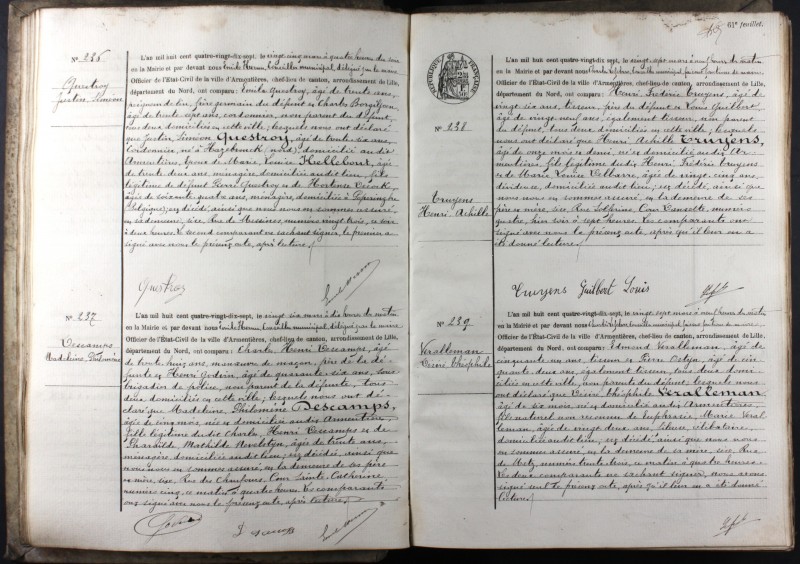 N° 236
Questroy
Justin Siméon
L'an mil huit cent quatre-vingt-dix-sept, le vingt cinq mars à quatre heures du soir
en la Mairie et par devant nous Conseiller municipal, délégué par le maire
Officier de l'État-Civil de la ville d'Armentières, chef-lieu de canton, arrondissement de Lille,
département du Nord, ont comparu: Emile Questroy, âgé de trente ans,
peigneur de lin, frère germain du défunt et Charles
âgé de trente sept ans, cordonnier, non parent du défunt,
tous deux domiciliés en cette ville; lesquels nous ont déclaré
que Justin Siméon Questroy, âgé de trente six ans,
né à Hazebrouck (nord), domicilié audit
Armentières, époux de Marie Louise Hellebout, âgée
de trente deux ans, ménagère, domiciliée audit lieu, fils
légitime de défunt Henri Questroy et de Hortense
âgée de soixante quatre ans, ménagère, domiciliée à Poperinghe
(Belgique); est décédé, ainsi que nous nous en sommes assuré,
en sa demeure, sise, Rue de Messines, numéro vingt trois, ce soir
à deux heures. Le second comparant ne sachant signer, le premier a
signé avec nous le présent acte, après lecture.
Questroy
N° 237
Descamps
Madeleine Philomène
L'an mil huit cent quatre-vingt-dix-sept, le vingt six mars à dix heures du matin
en la Mairie et par devant nous Conseiller municipal, délégué par le maire
Officier de l'État-Civil de la ville d'Armentières, chef-lieu de canton, arrondissement de Lille,
département du Nord, ont comparu: Charles Henri Descamps, âgé
de trente huit ans, manœuvre de maçon, père de la dé-
funte et Henri Godein, âgé de quarante six ans, sous
brigadier de police, non parent de la défunte, tous
deux domiciliés en cette ville; lesquels nous ont dé-
claré que Madeleine Philomène Descamps,
âgée de cinq mois, née et domiciliée audit Armentières
fille légitime dudit Charles Henri Descamps et de
Mathilde âgée de trente ans,
ménagère domiciliée audit lieu; est décédée, ainsi que
nous nous en sommes assuré, en la demeure de ses père
et mère, sise, Rue des Chauffours, Cour Sainte Catherine
numéro cinq, ce matin à quatre heures. Les comparants
ont signé avec nous le présent acte, après lecture.
Descamps
61e feuillet.
RÉPUBLIQUE FRANÇAISE
N° 238
Cruyens
Henri Achille
L'an mil huit cent quatre-vingt-dix-sept, le vingt sept mars à neuf heures du matin
en la Mairie et par devant nous Conseiller municipal faisant fonctions de maire,
Officier de l'État-Civil de la ville d'Armentières, chef-lieu de canton, arrondissement de Lille,
département du Nord, ont comparu: Henri Frédéric Cruyens, âgé de
vingt six ans, tisseur, père du défunt et Louis Guilbert,
âgé de vingt neuf ans, également tisseur, non parent
du défunt, tous deux domiciliés en cette ville; lesquels
nous ont déclaré que Henri Achille Cruyens,
âgé de onze mois et demi, né et domicilié audit Ar-
mentières, fils légitime dudit Henri Frédéric Cruyens
et de Marie Louise âgée de vingt cinq ans,
dévideuse, domiciliée audit lieu; est décédé, ainsi que
nous nous en sommes assuré, en la demeure de ses
père et mère, sise, Rue Solférino, Cour numéro
quatre, hier soir à sept heures. Les comparants ont
signé avec nous le présent acte, après qu'il leur en a
été donné lecture.
Cruyens Guilbert Louis
N° 239
Veralleman
Désiré Théophile
L'an mil huit cent quatre-vingt-dix-sept, le vingt sept mars à neuf heures du matin
en la Mairie et par devant nous Conseiller municipal faisant fonctions de maire,
Officier de l'État-Civil de la ville d'Armentières, chef-lieu de canton, arrondissement de Lille,
département du Nord, ont comparu: Edmond Veralleman, âgé de
cinquante un ans, tisseur et Pierre Ostyn, âgé de cin-
quante deux ans, également tisseur, tous deux domi-
ciliés en cette ville, non parents du défunt; lesquels nous
ont déclaré que Désiré Théophile Veralleman,
âgé de six mois, né et domicilié audit Armentières,
fils naturel non reconnu de Euphrasie Marie Veral
leman, âgée de vingt deux ans, fileuse, célibataire,
domiciliée audit lieu; est décédé ainsi que nous nous
en sommes assuré, en la demeure de sa mère, sise, Rue
de Metz, numéro trente trois, ce matin à quatre heures.
Les deux comparants ne sachant signer, nous avons
signé seul le présent acte, après qu'il leur en a été donné
lecture.